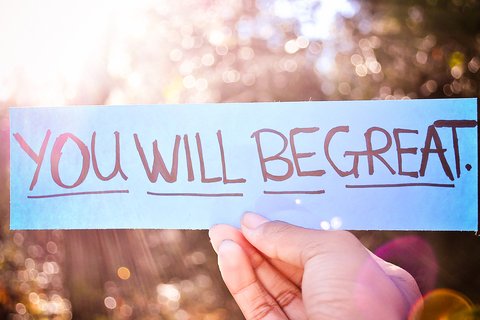 YOU WILL BE GREAT.